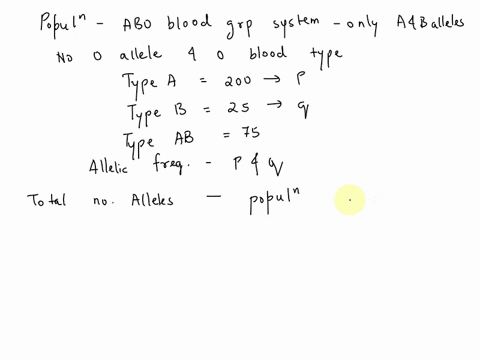 Populⁿ - ABO blood grp system - only A & B alleles
No O allele & O blood type
Type A = 200 → P
Type B = 25 → q
Type AB = 75
Allelic freq. - P & q
Total no. Alleles - populⁿ